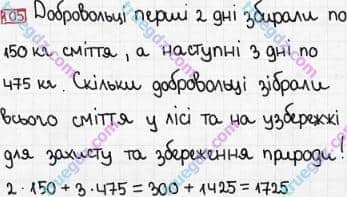 105 Добровольці перші 2 дні збирали по
150 кг сміття, а наступні 3 дні по
475 кг. Скільки добровольці зібрали
всього сміття у лісі та на узбережжі
для захисту та збереження природи!
2 · 150 + 3 · 475 = 300 + 1425 = 1725